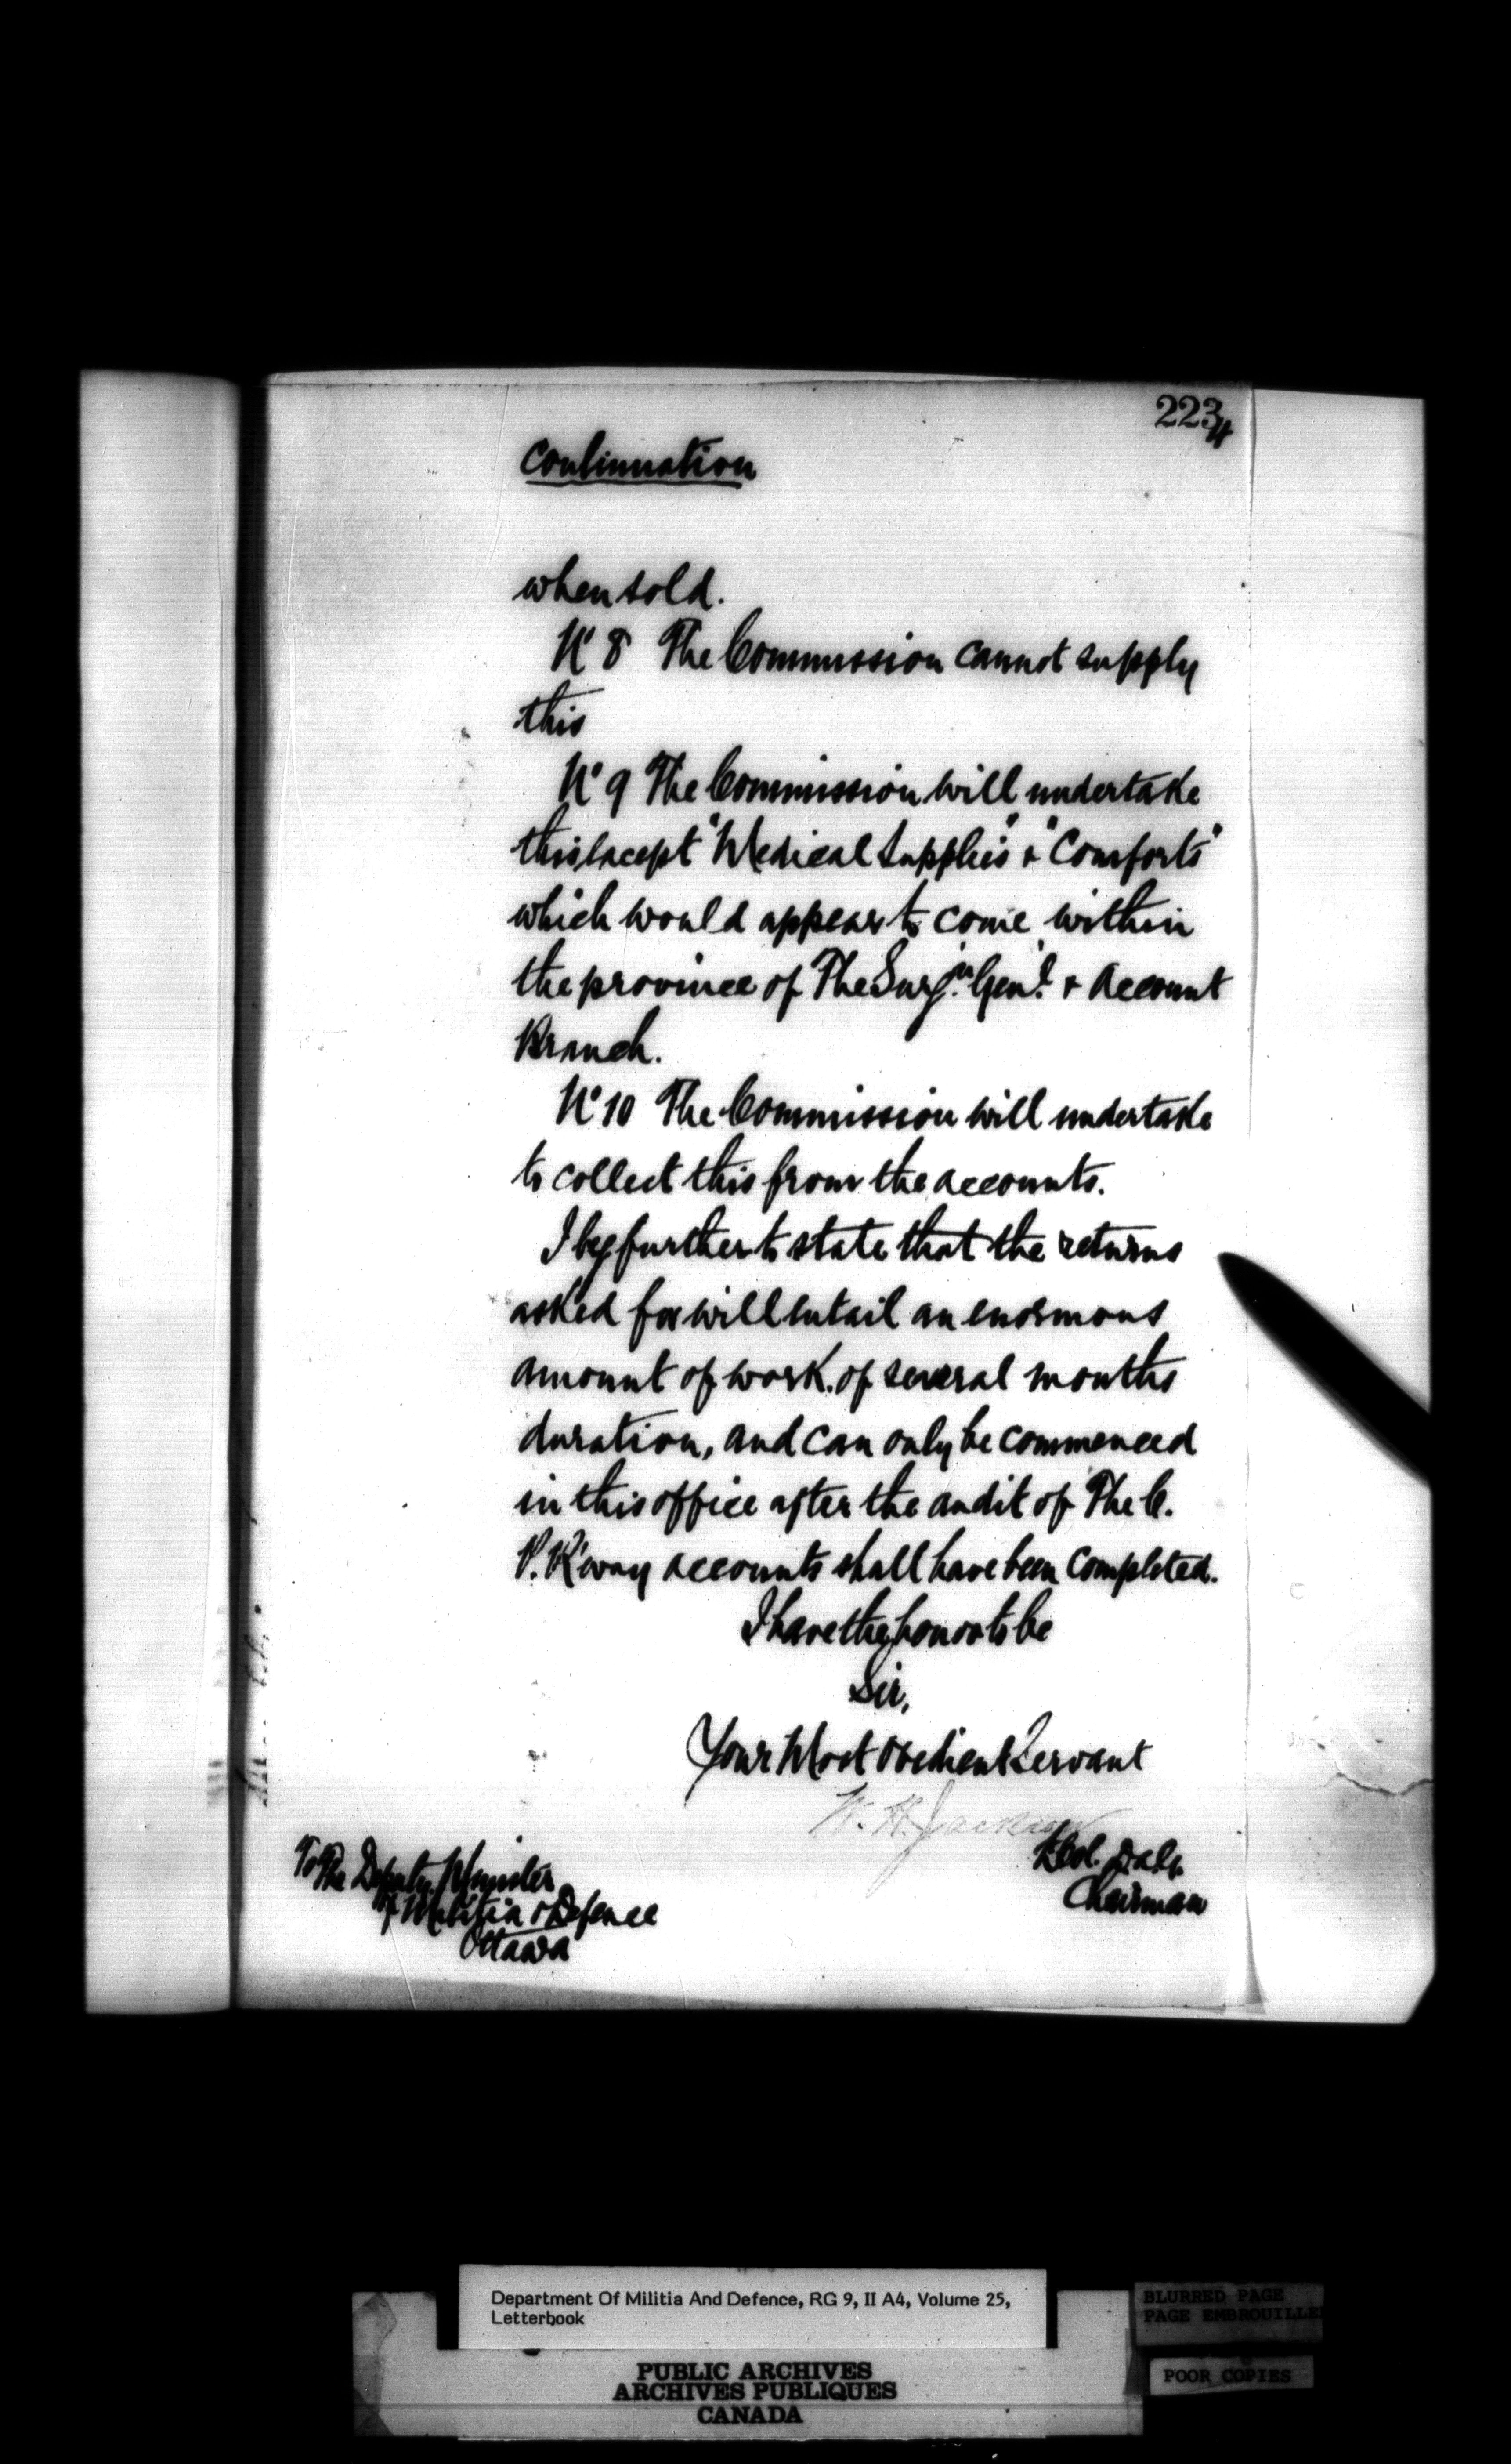 223
4
Continuation
when sold.
No 8 The Commission cannot supply
this
No 9 The Commission will undertake
this except "Medical Supplies" & "Comforts"
which would appear to come within
the province of The Surgn. Genl. & Account
Branch.
No 10 The Commission will undertake
to collect this from the accounts.
I beg further to state that the returns
asked for will entail an enormous
amount of work, of several months
duration, and can only be commenced
in this office after the audit of The C.
P. R'way accounts shall have been completed.
I have the honor to be
Sir,
Your Most Obedient Servant
W. H. Jackson
Chairman
To The Deputy Minister
of Militia & Defence
Ottawa
Department Of Militia And Defence, RG 9, II A4, Volume 25,
Letterbook
BLURRED PAGE
PAGE EMBROUILLE
POOR COPIES
PUBLIC ARCHIVES
ARCHIVES PUBLIQUES
CANADA